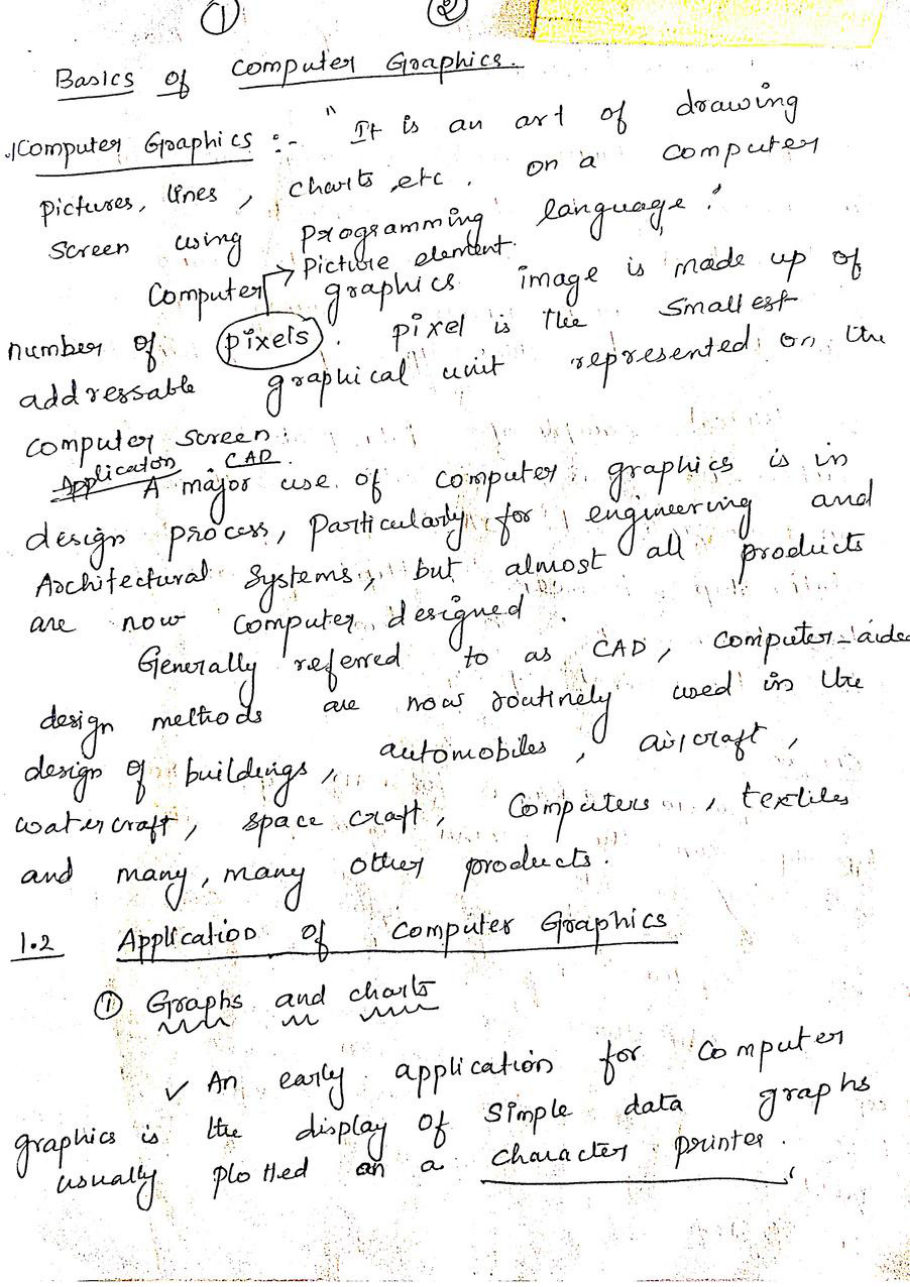 ① ②
Basics of Computer Graphics.
Computer Graphics :- "It is an art of drawing
pictures, lines, charts, etc. on a computer
screen using programming language."
Picture element.
Computer graphics image is made up of
number of pixels. pixel is the smallest
addressable graphical unit represented on the
computer screen.
Application CAD.
A major use of computer graphics is in
design process, particularly for engineering and
Architectural systems, but almost all products
are now computer designed.
Generally referred to as CAD, computer-aided
design methods are now routinely used in the
design of buildings, automobiles, aircraft,
watercraft, space craft, Computers, textiles
and many, many other products.
1.2 Application of computer Graphics
① Graphs and charts
✓ An early application for computer
graphics is the display of simple data graphs
usually plotted on a character printer.